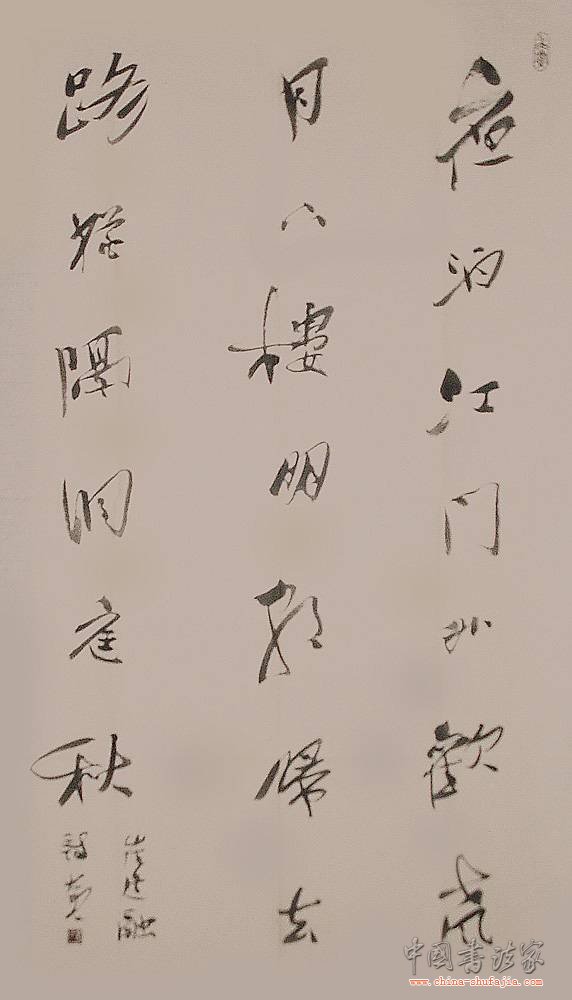 夜泊江門外歡聲
月下樓明朝歸去
路猶隔洞庭秋
崔道融
中国書法家
www.china-shufajia.com